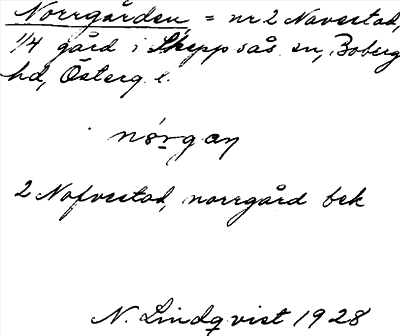 Norrgården, = nr 2 Navestad,
1/4 gård i Skeppsås sn, Boberg
hd, Österg. l.
nórgan
2 Nafvestad, norrgård bek
N. Lindqvist 1928